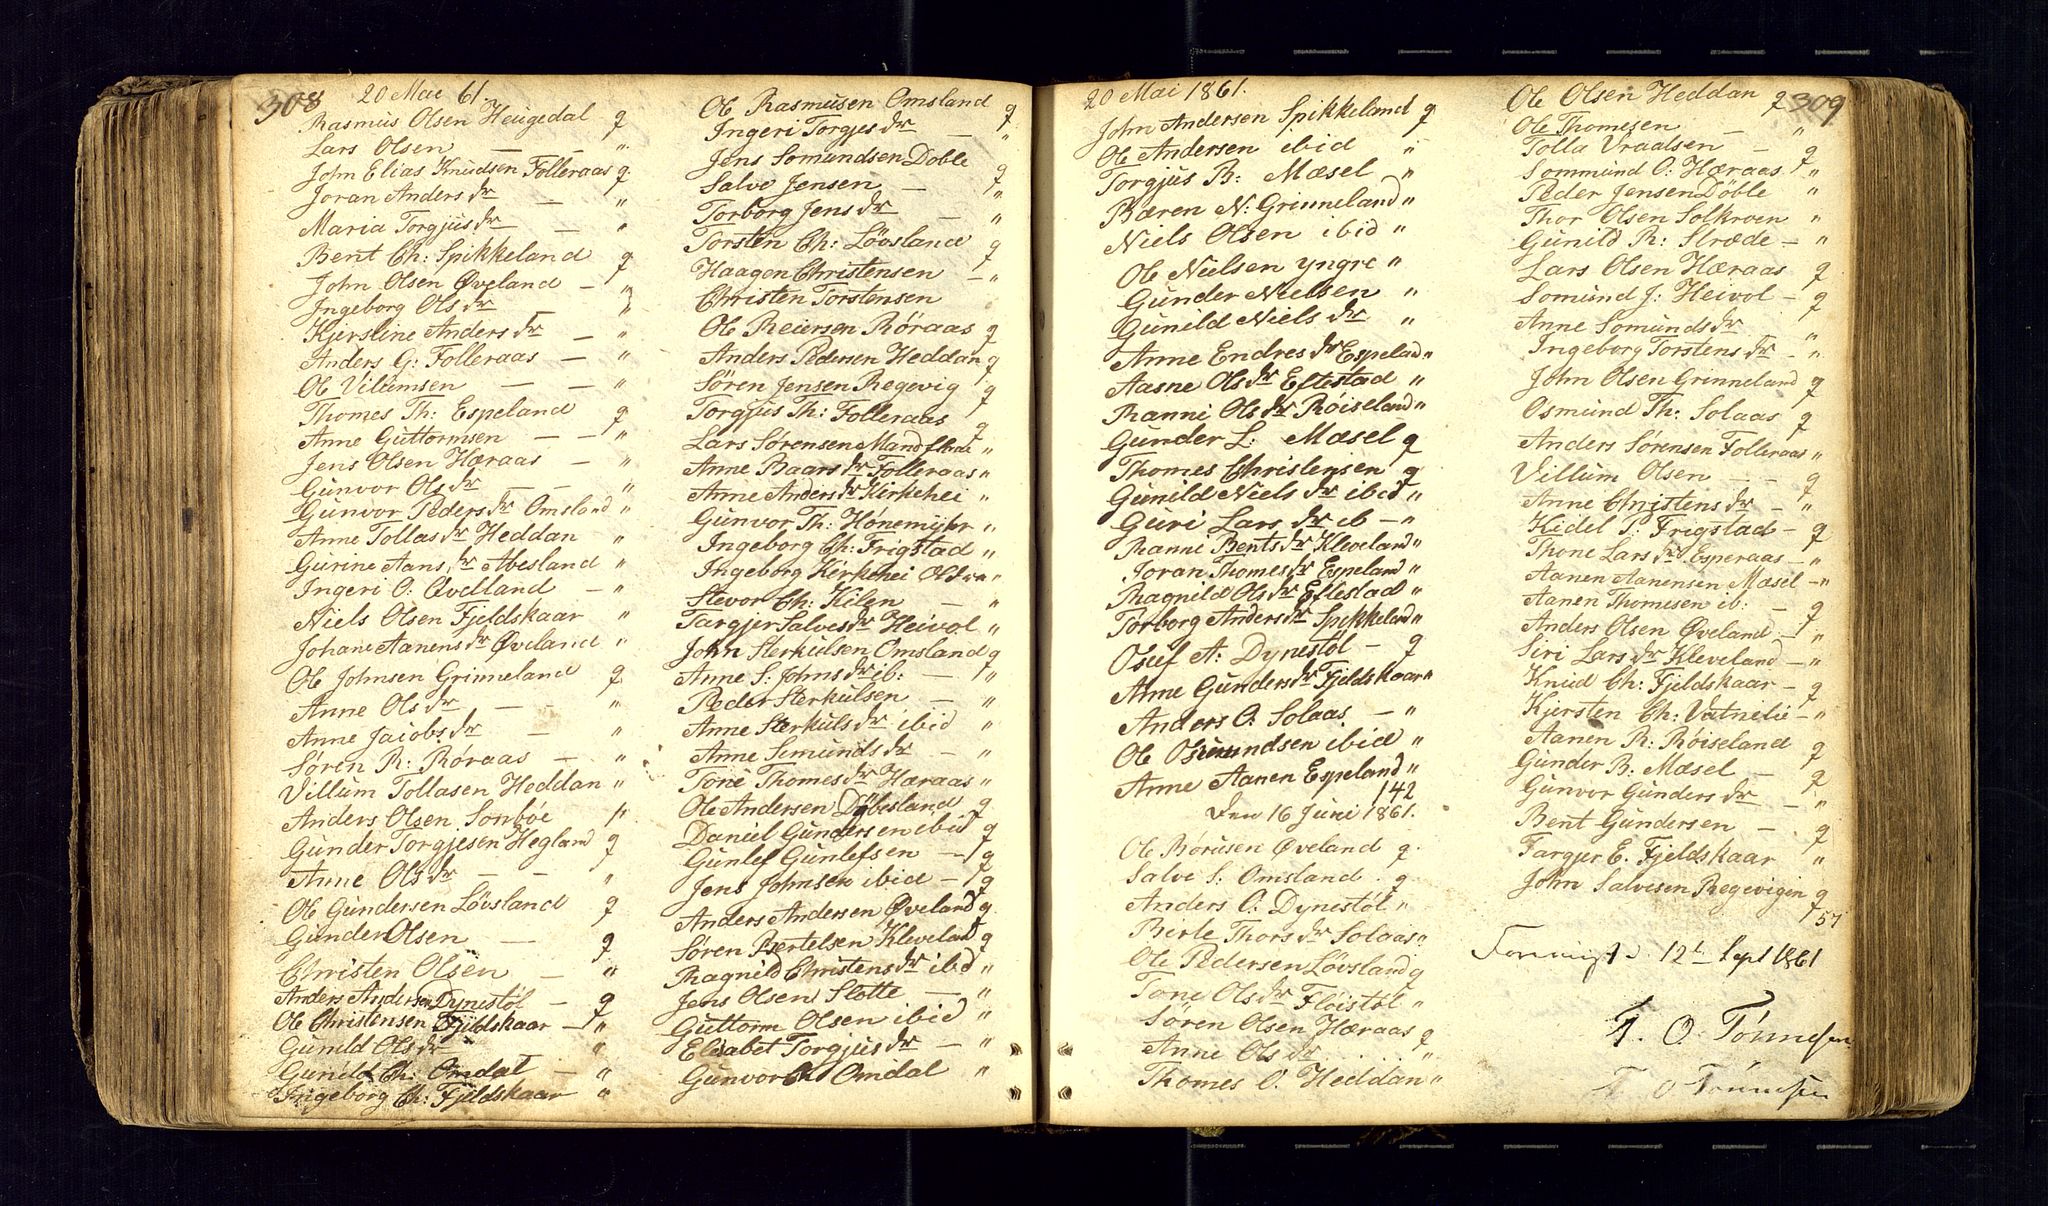 308
20 Mai 61.
Rasmus Olsen Heugedal g
Lars Olsen — — "
John Elias Knudsen Folleraas g
Joran Andersdr — "
Maria Torgjusdr — "
Bent Ch: Spikkeland g
John Olsen Øveland — "
Ingeborg Olsdr "
Kjerstine Andersdr — "
Anders G: Folleraas — "
Ole Villumsen — — "
Thomes Th: Espeland g
Anne Guttormsen — — "
Jens Olsen Hæraas — "
Gunvor Olsdr — — "
Gunvor Pedersdr Omsland "
Anne Tollasdr Heddan "
Gurine Aansdr Abesland "
Ingeri O: Qvelland — "
Niels Olsen Fjeldskaar "
Johane Aanensdr Øveland "
Ole Johnsen Grinneland g
Anne Olsdr — — "
Anne Jacobsdr — "
Søren R: Røraas — "
Villum Tollasen Heddan "
Anders Olsen Sonbøe "
Gunder Torgjesen Hegland g
Anne Olsdr — — "
Ole Gundersen Løvsland g
Gunder Olsen — g
Christen Olsen — "
Anders Andersen Dynestøl — g
Ole Christensen Fjeldskaar — "
Gunild Olsdr "
Gunild Ch: Omdal — "
Ingeborg Ch: Fjeldskaar "
Ole Rasmusen Omsland g
Ingeri Torgjesdr — "
Jens Somundsen Døble g
Salve Jensen — g
Torborg Jensdr — "
Torsten Ch: Løvsland g
Haagen Christensen — "
Christen Torstensen
Ole Reiersen Røraas g
Anders Pedersen Heddan g
Søren Jensen Regevig g
Torgjus Th: Folleraas g
Lars Sørensen "
Anne Baarsdr Folleraas "
Anne Andersdr Kirkehei "
Gunvor Th: Hønemyhr "
Ingeborg Ch: Frigstad "
Ingeborg Kirkehei "
Stevor Ch: Kilen — "
Targjer Salvesdr Heivol "
John Sterkulsen Omsland g
Anne S: Johnsdr ib: — "
Peder Sterkulsen — "
Anne Sterkulsdr ibid "
Anne Simundsdr — "
Tone Thomesdr Hæraas "
Ole Andersen Døbesland g
Daniel Gundersen ibid g
Gunlef Gunlefsen — g
Jens Johnsen ibid — g
Anders Andersen Øveland g
Søren Bertelsen Kleveland g
Ragnild Christensdr ibid "
Jens Olsen Slotte — "
Guttorm Olsen ibid "
Elisabet Torgjusdr — "
Gunvor Ch Omdal "
309
20 Mai 1861.
John Andersen Spikkeland g
Ole Andersen ibid "
Torgjus B: Mæsel "
Bæren N: Grinneland "
Niels Olsen ibid "
Ole Nielsen yngre "
Gunder Nielsen "
Gunild Nielsdr "
Anne Endresdr Espeland "
Aasne Olsdr Eftestad "
Ranni Olsdr Røiseland "
Gunder L: Mæsel g
Thomes Christensen g
Gunild Nielsdr ibid "
Guri Larsdr ib — "
Ranni Bentsdr Kleveland "
Joran Thomesdr Espeland "
Ragnild Olsdr Eftestad "
Torborg Andersdr Spikkeland "
Osuf A: Dynestøl — g
Anne Gundersdr Fjeldskaar "
Anders O: Solaas — "
Ole Osmundsen ibid "
Anne Aanen Espeland "
142
Den 16 Juni 1861.
Ole Børusen Øveland g.
Salve S: Omsland . g
Anders O: Dynestøl "
Birte Thorsdr Solaas "
Ole Pedersen Løvsland g
Tone Olsdr Fløistøl "
Søren Olsen Hæraas g
Anne Olsdr . . . . "
Thomes O. Heddan "
Ole Olsen Heddan g
Ole Thomesen — "
Tolla Vraalsen — g
Sommund O: Hæraas "
Peder Jensen Døble "
Thor Olsen Solkroen "
Gunild R: Stræde — "
Lars Olsen Hæraas g
Somund J: Heivol — g
Anne Somundsdr "
Ingeborg Torstensdr — "
John Olsen Grinneland g
Osmund Th: Solaas g
Anders Sørensen Folleraas "
Villum Olsen — — g
Anne Christensdr — "
Kidel S. Frigstad — g
Thone Larsdr Esperaas — "
Aanen Aanensen Mæsel — "
Aanen Thomesen ib: — g
Anders Olsen Øveland — "
Siri Larsdr Kleveland — "
Knud Ch: Fjeldskaar — g
Kjersten Ch: Vatnelie — "
Aanen R: Røiseland g
Gunder B: Mæsel — g
Gunvor Gundersdr — "
Bent Gundersen — g
Targjer E. Fjeldskaar "
John Salvesen Regevigen g
57
12t Sept 1861
T. O. Tønnesen
T O Tønnesen